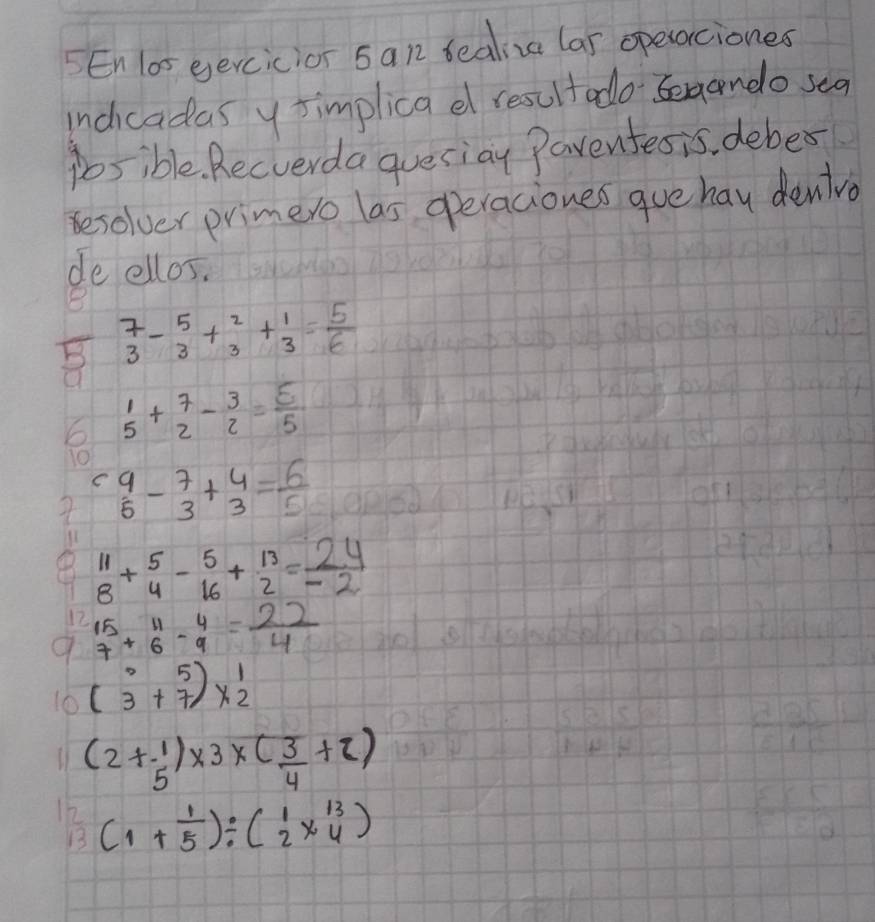 5 En los egercicios 5 a 12 realiza las operaciones
indicadas y simplica el resultado cuando sea
posible. Recuerda que si ay Parentesis, debes
resolver primero las operaciones que hay dentro
de ellos.
5 7/3 - 5/3 + 2/3 + 1/3 = 5/6
6 1/5 + 7/2 - 3/2 = 5/5
7 9/5 - 7/3 + 4/3 = 6/5
8 11/8 + 5/4 - 5/16 + 13/2 = 24/-2
9 15/7 + 11/6 - 4/9 = 22/4
10 ( 3 + 5/7 ) x 1/2
11 (2 + 1/5) x 3 x (3/4 + 2)
12 (1 + 1/5) ÷ (1/2 x 13/4)